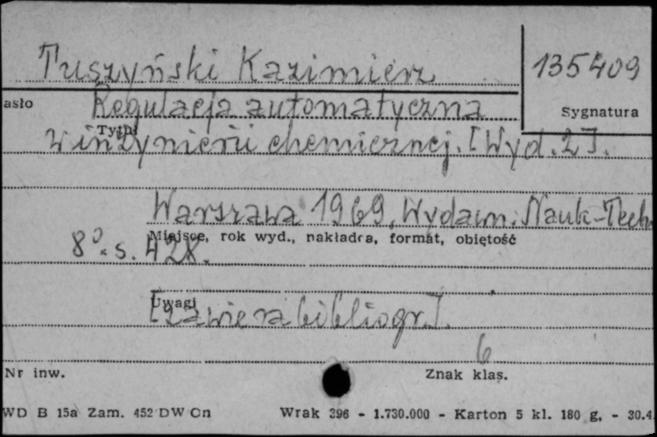 Tuszyński Kazimierz
135409
asło
Regulacja automatyczna
Sygnatura
Tytuł
w inżynierii chemicznej. [Wyd. 2].
Warszawa 1969, Wydawn. Nauk-Techn
Miejsce, rok wyd., nakładca, format, objętość
8°. s. 428.
Uwagi
[zawiera bibliogr.].
6
Nr inw.
Znak klas.
WD B 15a Zam. 452 DW Cn Wrak 396 - 1.730.000 - Karton 5 kl. 180 g. - 30.4